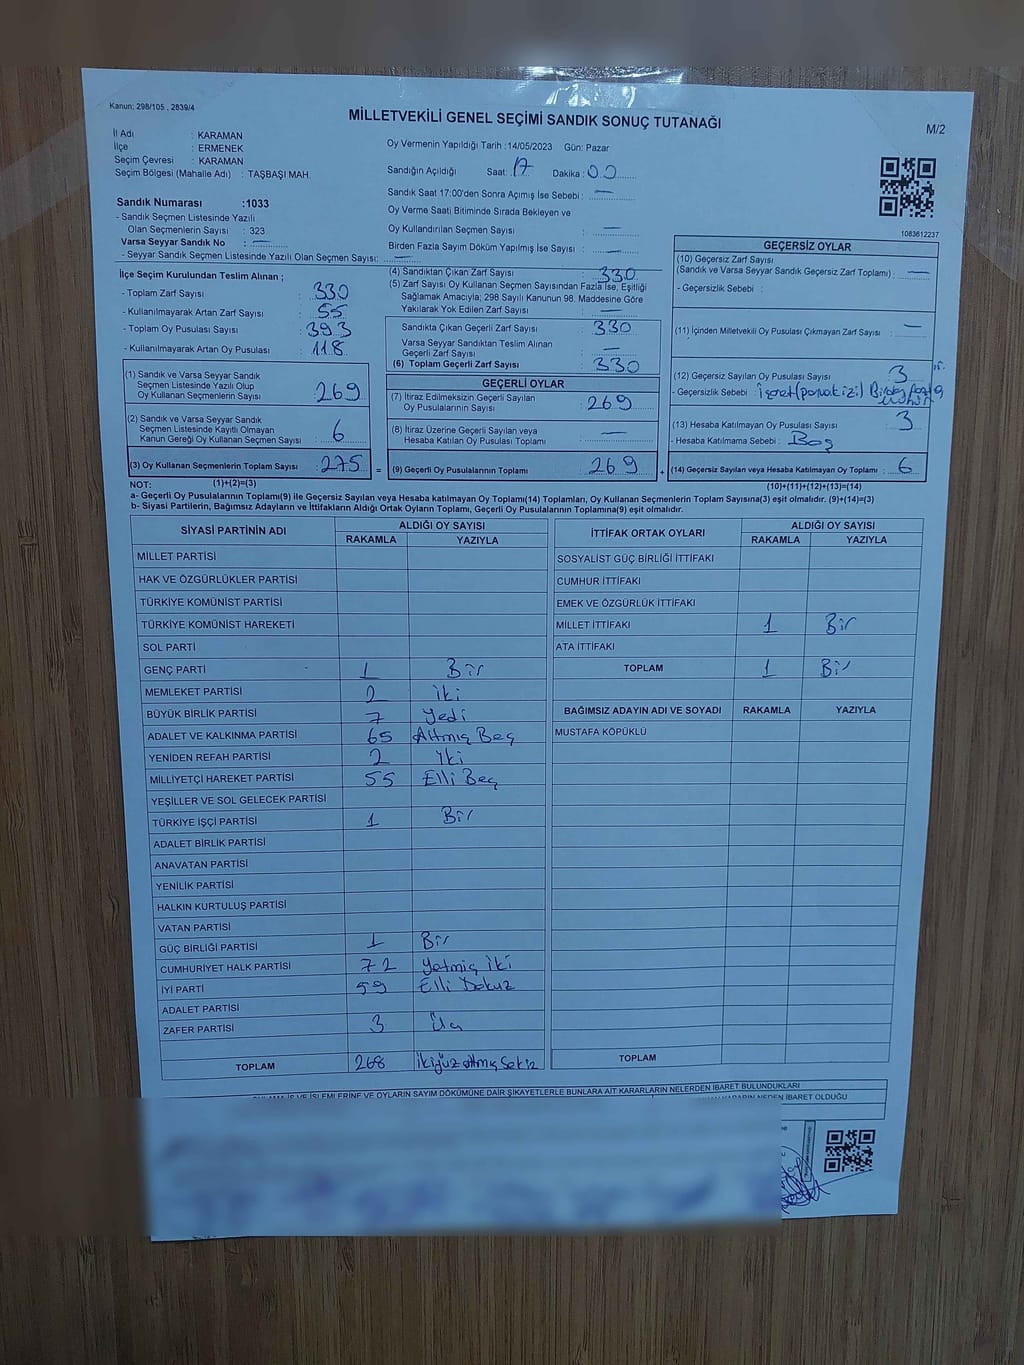 Kanun; 298/105 , 2839/4
MİLLETVEKİLİ GENEL SEÇİMİ SANDIK SONUÇ TUTANAĞI
M/2
İl Adı : KARAMAN
İlçe : ERMENEK
Seçim Çevresi : KARAMAN
Seçim Bölgesi (Mahalle Adı) : TAŞBAŞI MAH.
Oy Vermenin Yapıldığı Tarih :14/05/2023 Gün: Pazar
Sandığın Açıldığı Saat: 17 Dakika : 00
Sandık Saat 17:00'den Sonra Açımış İse Sebebi : —
Oy Verme Saati Bitiminde Sırada Bekleyen ve
Oy Kullandırılan Seçmen Sayısı : —
Birden Fazla Sayım Döküm Yapılmış İse Sayısı : —
Sandık Numarası :1033
- Sandık Seçmen Listesinde Yazılı
Olan Seçmenlerin Sayısı : 323
Varsa Seyyar Sandık No : —
- Seyyar Sandık Seçmen Listesinde Yazılı Olan Seçmen Sayısı: —
1083612237
İlçe Seçim Kurulundan Teslim Alınan ;
- Toplam Zarf Sayısı : 330
- Kullanılmayarak Artan Zarf Sayısı : 55
- Toplam Oy Pusulası Sayısı : 393
- Kullanılmayarak Artan Oy Pusulası : 118
(1) Sandık ve Varsa Seyyar Sandık
Seçmen Listesinde Yazılı Olup
Oy Kullanan Seçmen Sayısı : 269
(2) Sandık ve Varsa Seyyar Sandık
Seçmen Listesinde Kayıtlı Olmayan
Kanun Gereği Oy Kullanan Seçmen Sayısı : 6
(3) Oy Kullanan Seçmenlerin Toplam Sayısı : 275 =
(4) Sandıktan Çıkan Zarf Sayısı : 330
(5) Zarf Sayısı Oy Kullanan Seçmen Sayısından Fazla İse, Eşitliği
Sağlamak Amacıyla; 298 Sayılı Kanunun 98. Maddesine Göre
Yakılarak Yok Edilen Zarf Sayısı : —
Sandıkta Çıkan Geçerli Zarf Sayısı : 330
Varsa Seyyar Sandıktan Teslim Alınan
Geçerli Zarf Sayısı : —
(6) Toplam Geçerli Zarf Sayısı : 330
GEÇERLİ OYLAR
(7) İtiraz Edilmeksizin Geçerli Sayılan
Oy Pusulalarının Sayısı : 269
(8) İtiraz Üzerine Geçerli Sayılan veya
Hesaba Katılan Oy Pusulası Toplamı : —
(9) Geçerli Oy Pusulalarının Toplamı : 269 +
GEÇERSİZ OYLAR
(10) Geçersiz Zarf Sayısı
(Sandık ve Varsa Seyyar Sandık Geçersiz Zarf Toplamı) : —
- Geçersizlik Sebebi :
(11) İçinden Milletvekili Oy Pusulası Çıkmayan Zarf Sayısı : —
(12) Geçersiz Sayılan Oy Pusulası Sayısı : 3
- Geçersizlik Sebebi : İşaret(parmak izi)
(13) Hesaba Katılmayan Oy Pusulası Sayısı : 3
- Hesaba Katılmama Sebebi : Boş
(14) Geçersiz Sayılan veya Hesaba Katılmayan Oy Toplamı : 6
NOT: (1)+(2)=(3)
(10)+(11)+(12)+(13)=(14)
a- Geçerli Oy Pusulalarının Toplamı(9) ile Geçersiz Sayılan veya Hesaba katılmayan Oy Toplamı(14) Toplamları, Oy Kullanan Seçmenlerin Toplam Sayısına(3) eşit olmalıdır. (9)+(14)=(3)
b- Siyasi Partilerin, Bağımsız Adayların ve İttifakların Aldığı Ortak Oyların Toplamı, Geçerli Oy Pusulalarının Toplamına(9) eşit olmalıdır.
SİYASİ PARTİNİN ADI ALDIĞI OY SAYISI
RAKAMLA YAZIYLA
MİLLET PARTİSİ
HAK VE ÖZGÜRLÜKLER PARTİSİ
TÜRKİYE KOMÜNİST PARTİSİ
TÜRKİYE KOMÜNİST HAREKETİ
SOL PARTİ
GENÇ PARTİ 1 Bir
MEMLEKET PARTİSİ 2 iki
BÜYÜK BİRLİK PARTİSİ 7 Yedi
ADALET VE KALKINMA PARTİSİ 65 Altmış Beş
YENİDEN REFAH PARTİSİ 2 iki
MİLLİYETÇİ HAREKET PARTİSİ 55 Elli Beş
YEŞİLLER VE SOL GELECEK PARTİSİ
TÜRKİYE İŞÇİ PARTİSİ 1 Bir
ADALET BİRLİK PARTİSİ
ANAVATAN PARTİSİ
YENİLİK PARTİSİ
HALKIN KURTULUŞ PARTİSİ
VATAN PARTİSİ
GÜÇ BİRLİĞİ PARTİSİ 1 Bir
CUMHURİYET HALK PARTİSİ 72 Yetmiş iki
İYİ PARTİ 59 Elli Dokuz
ADALET PARTİSİ
ZAFER PARTİSİ 3 Üç
TOPLAM 268 ikiyüz altmış Sekiz
İTTİFAK ORTAK OYLARI ALDIĞI OY SAYISI
RAKAMLA YAZIYLA
SOSYALİST GÜÇ BİRLİĞİ İTTİFAKI
CUMHUR İTTİFAKI
EMEK VE ÖZGÜRLÜK İTTİFAKI
MİLLET İTTİFAKI 1 Bir
ATA İTTİFAKI
TOPLAM 1 Bir
BAĞIMSIZ ADAYIN ADI VE SOYADI RAKAMLA YAZIYLA
MUSTAFA KÖPÜKLÜ
TOPLAM
İŞ VE İŞLEMLERİNE VE OYLARIN SAYIM DÖKÜMÜNE DAİR ŞİKAYETLERLE BUNLARA AİT KARARLARIN NELERDEN İBARET BULUNDUKLARI
KARARIN NEDEN İBARET OLDUĞU